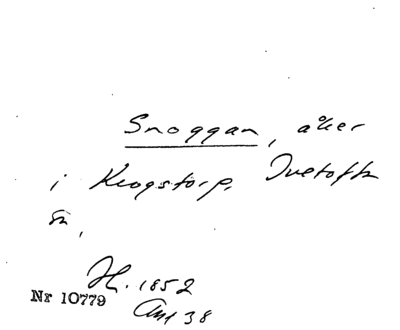 Snoggan, åker
i Krogstorp, Ivetofta
sn,
1852
Nr 10779
38